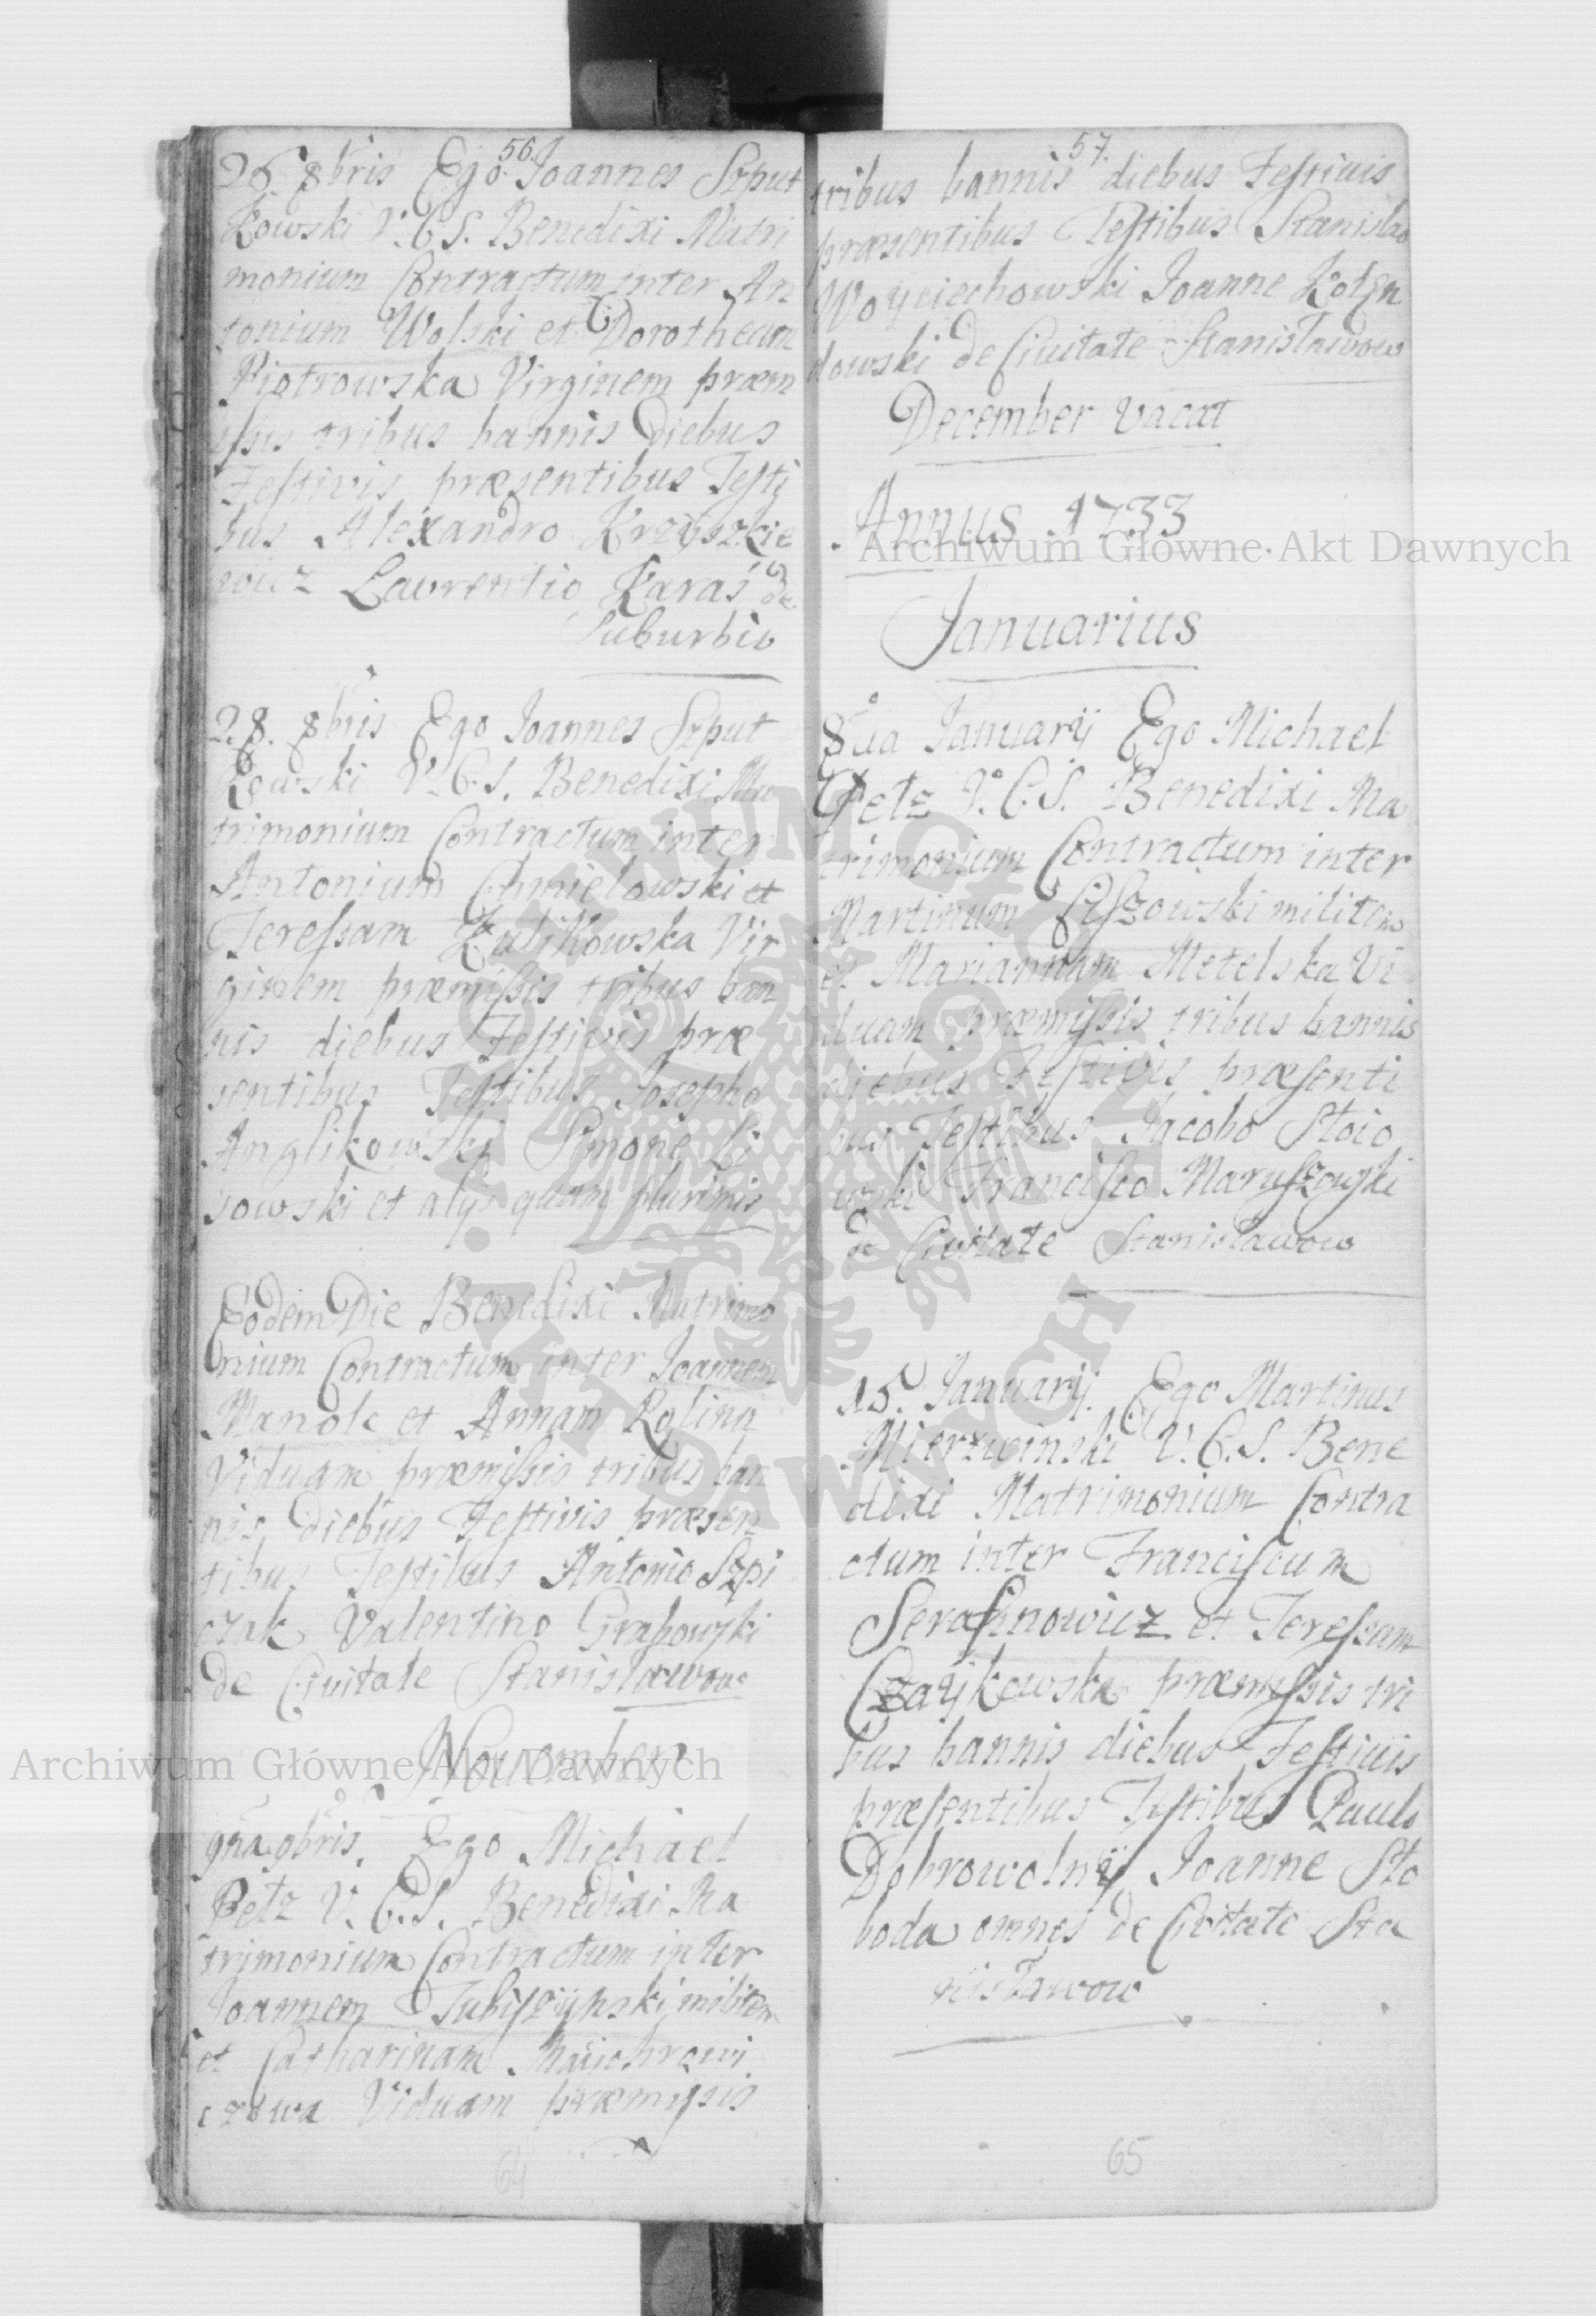 56.
26. 8bris Ego Joannes Szput
kowski V.C.S. Benedixi Matri
monium Contractum inter An
tonium Wolski et Dorotheam
Piotrowska Virginem præm
issis tribus bannis diebus
Festivis præsentibus Testi
bus Alexandro Krzyszkie
wicz Laurentio Karas de
Suburbio
28. 8bris Ego Joannes Szput
kowski V.C.S. Benedixi Ma
trimonium Contractum inter
Antonium Chmielowski et
Teressam Kulikowska Vir
ginem præmissis tribus ban
nis diebus Festivis præ
sentibus Testibus Josepho
Anglikowski Simone Li
sowski et alys quam plurimis
Eodem Die Benedixi Matrimo
nium Contractum inter Joannem
Manole et Annam
Viduam præmissis tribus ban
nis diebus Festivis præsen
tibus Testibus Antonio Szpi
czak Valentino Grabowski
de Civitate Stanislawow
November
9na 9bris. Ego Michael
Petz V.C.S. Benedixi Ma
trimonium Contractum inter
Joannem militem
et Catharinam Maiichrowi
czowa Viduam præmissis
64
57.
tribus bannis diebus Festivis
præsentibus Testibus Stanislao
Woyciechowski Joanne Kolen
dowski de Civitate Stanislawow
December vacat
Annus 1733
Januarius
8va Januarij Ego Michael
Petz V.C.S. Benedixi Ma
trimonium Contractum inter
Martinum Liszowski militem
et Mariannam Metelska Vi
duam præmissis tribus bannis
diebus Festivis præsenti
bus Testibus Jacobo Stoio
wski Francisco Maruszowski
de Civitate Stanislawow
15. Januarij. Ego Martinus
Mierzwinski V.C.S. Bene
dixi Matrimonium Contra
ctum inter Franciscum
Serafinowicz et Teressam
Czaijkowska præmissis tri
bus bannis diebus Festivis
præsentibus Testibus Paulo
Dobrowolnij Joanne Sto
boda omnes de Civitate Sta
nislawow
65
Archiwum Główne Akt Dawnych
Archiwum Główne Akt Dawnych
ARCHIWUM GŁÓWNE AKT DAWNYCH